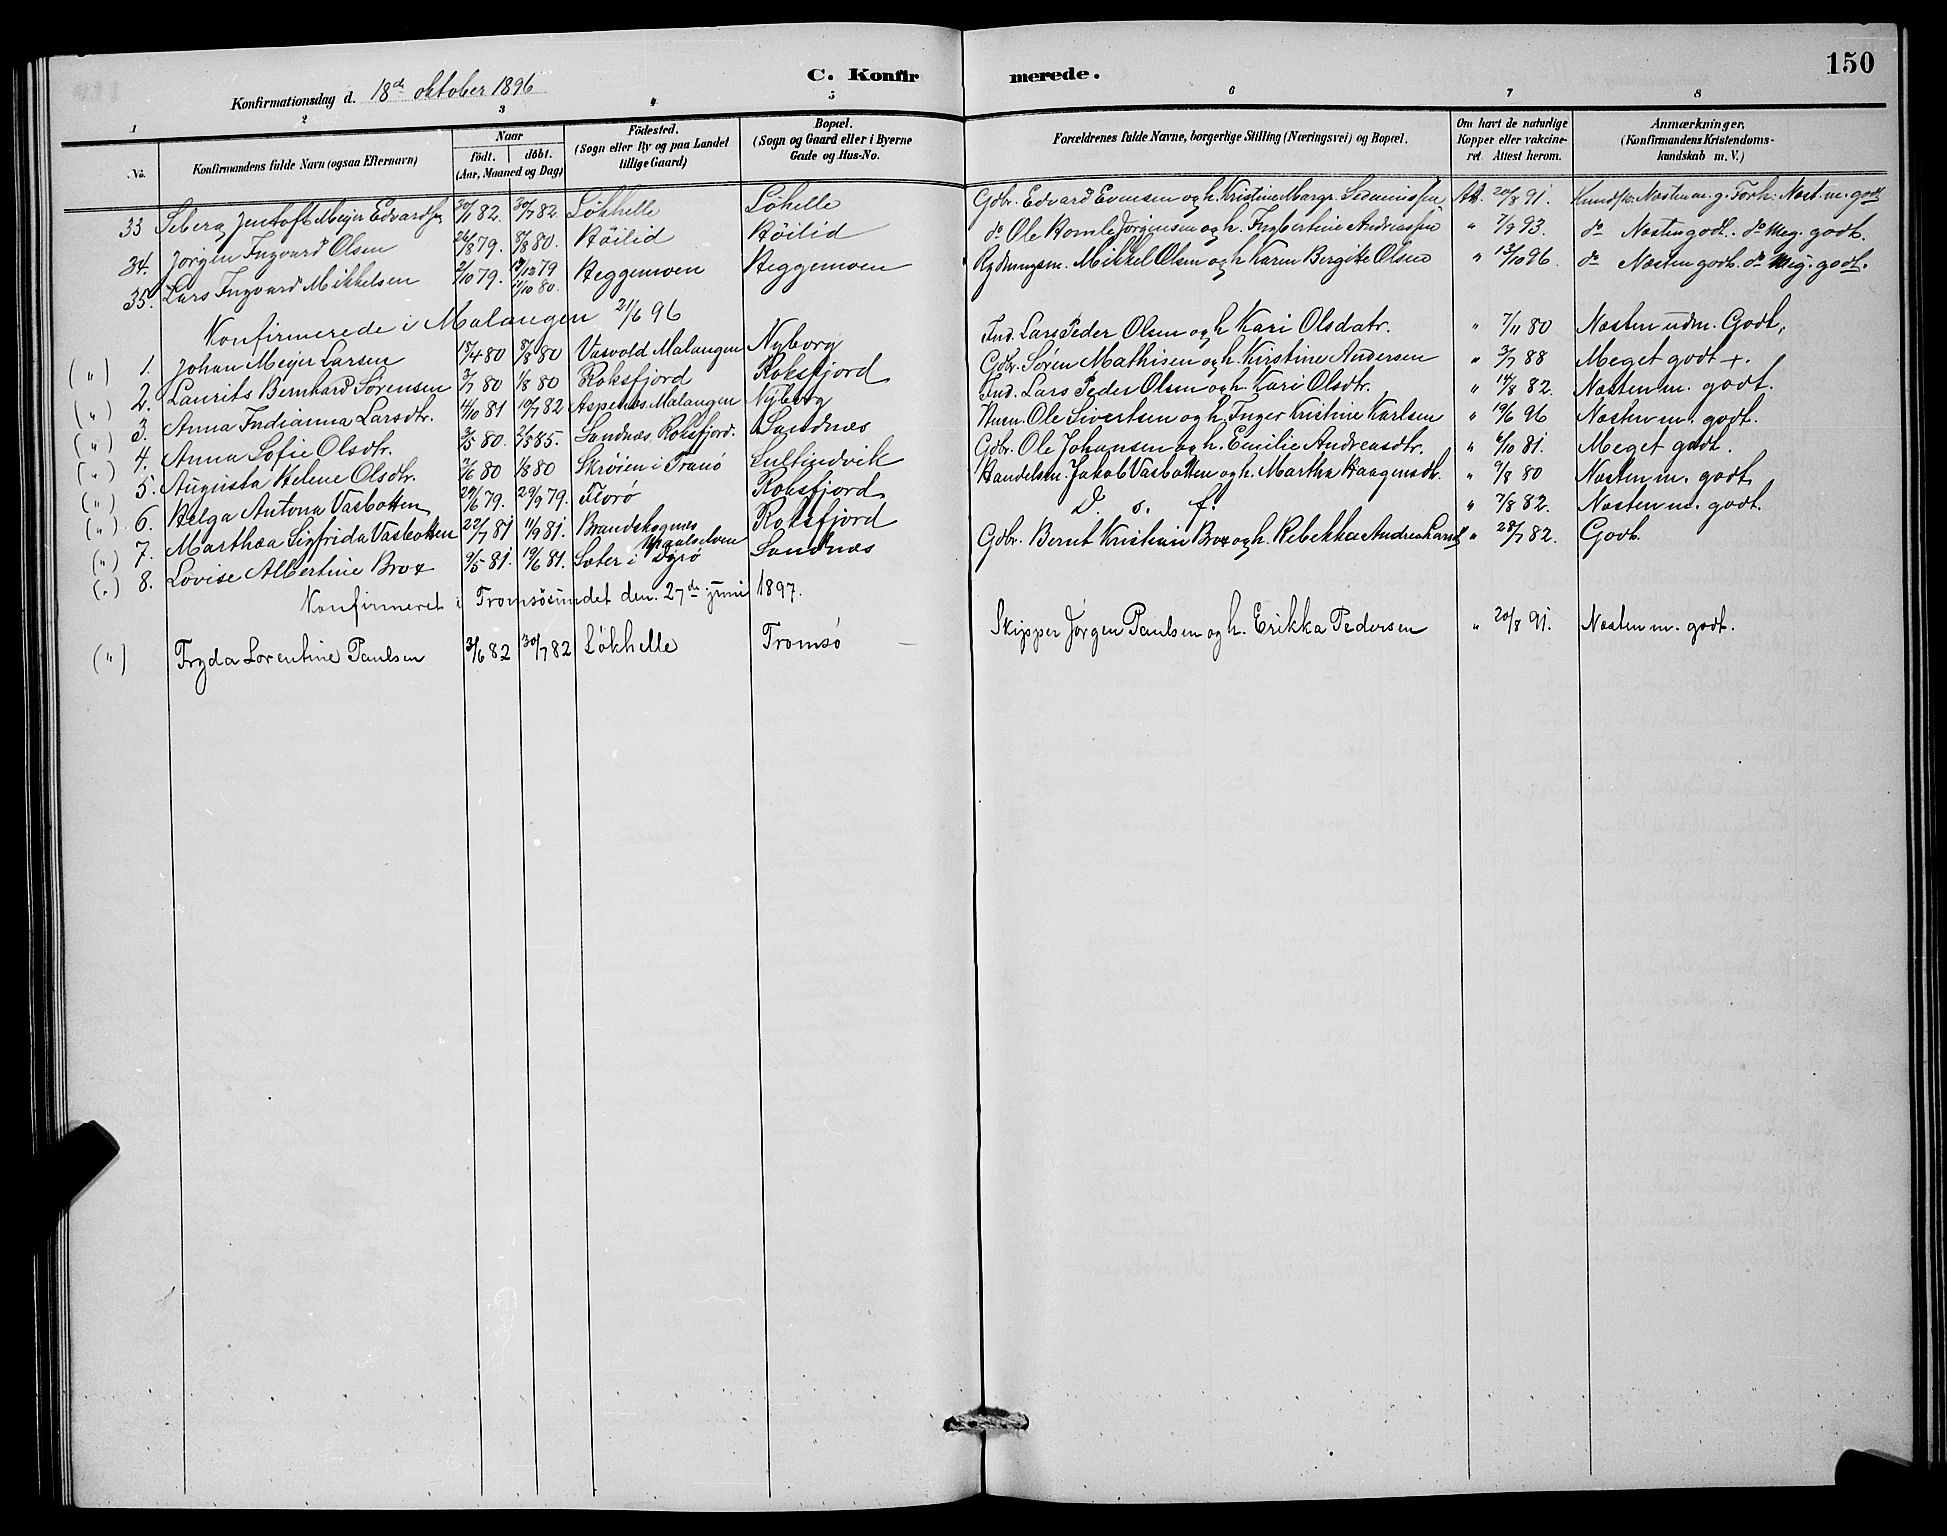 150
C. Konfirmerede.
Konfirmationsdag d. 18de oktober 1896
1 2 3 4 5 6 7 8
No. Konfirmandens fulde Navn (ogsaa Efternavn) Naar födt. döbt. (Aar, Maaned og Dag) Födested. (Sogn eller By og paa Landet tillige Gaard) Bopæl. (Sogn og Gaard eller i Byerne Gade og Hus-No. Forældrenes fulde Navne, borgerlige Stilling (Næringsvei) og Bopæl. Om havt de naturlige Kopper eller vakcineret. Attest herom. Anmærkninger, (Konfirmandens Kristendomskundskab m. V.)
33 Seberg Jentoft Meÿer Edvardsen 82. 30/7 82. Løkhelle Løhelle Gdbr. Edvard Evensen og h. Kristine Margr. Att. 20/8 91. Kundsk. Næsten m. g. Forh: Næst. m. godt
34. Jørgen Ingvard Olsen 26/8 79. 8/8 80. Høilid Høilid do Ole Hemle Jørgensen og h. Ingbertine Andreassen " 7/9 93. do Næsten godt. do Meg. godt.
35. Lars Ingvard Mikkelsen 2/10 79. 12/12 79 11/10 80. Heggemoen Heggemoen Rydningsm. Mikkel Olsen og h. Karen Bergitte Olsen " 13/10 96. do Næsten godt. do Meg. godt.
Konfirmerede i Malangen 21/6 96
(") 1. Johan Meÿer Larsen 18/4 80 8/8 80 Vasvold Malangen Nyborg Ind. Lars Peder Olsen og h. Kari Olsdatr. " 7/11 80 Næsten udm. Godt.
(") 2. Laurits Bernhard Sørensen 3/7 80 1/8 80 Roksfjord Roksfjord Gdbr. Søren Mathisen og h. Kirstine Andersen " 3/7 88 Meget godt +.
(") 3. Anna Indianna Larsdtr. 14/10 81 19/7 82 Aspenes Malangen Nyborg Ind. Lars Peder Olsen og h. Kari Olsdtr. " 14/8 82. Næsten m. godt.
(") 4. Anna Sofie Olsdtr. 3/5 80. 2/5 85. Sandnæs, Roksfjord. Sandnæs Husm. Ole Sivertsen og h. Inger Kristine Karlsen " 19/6 96 Næsten m. godt.
(") 5. Augusta Helene Olsdtr. 2/6 80 1/8 80 Skrøren i Tranø Sultindvik Gdbr. Ole Johansen og h. Emilie Andreasdtr. " 6/10 81. Meget godt.
(") 6. Helga Antona Vasbotten 29/6 79. 29/9 79. Florø Roksfjord Handelsm. Jakob Vasbotten og h. Martha Haagensdt. " 9/8 80 Næsten m. godt
(") 7. Marthea Sigfrida Vasbotten 22/7 81 11/9 81. Brandskognæs Maalselven Roksfjord D. s. f. " 7/8 82. Næsten m. godt.
(") 8. Lovise Albertine Brox 9/5 81. 19/6 81. Sæter i Dyrø Sandnæs Gdbr. Bernt Kristian Brox og h. Rebekka Andrea " 28/7 82. Godt.
Konfirmeret i Tromsøsundet den 27de juni 1897.
(") Tryda Lorentine Paulsen 3/6 82 30/7 82 Løkhelle Tromsø Skipper Jørgen Paulsen og h. Erikka Pedersen " 20/8 91. Næsten m. godt.